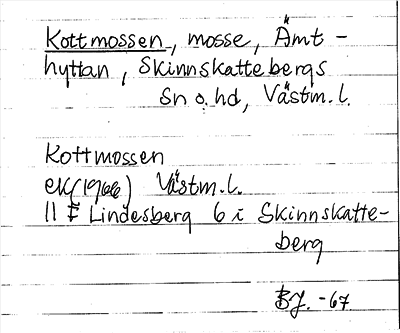 Kottmossen, mosse, Ämt-
hyttan, Skinnskattebergs
Sn o. hd, Västm. l.
Kottmossen
ek (1966) Västm. l.
11 F Lindesberg 6 i Skinnskatte-
berg
BJ. -67